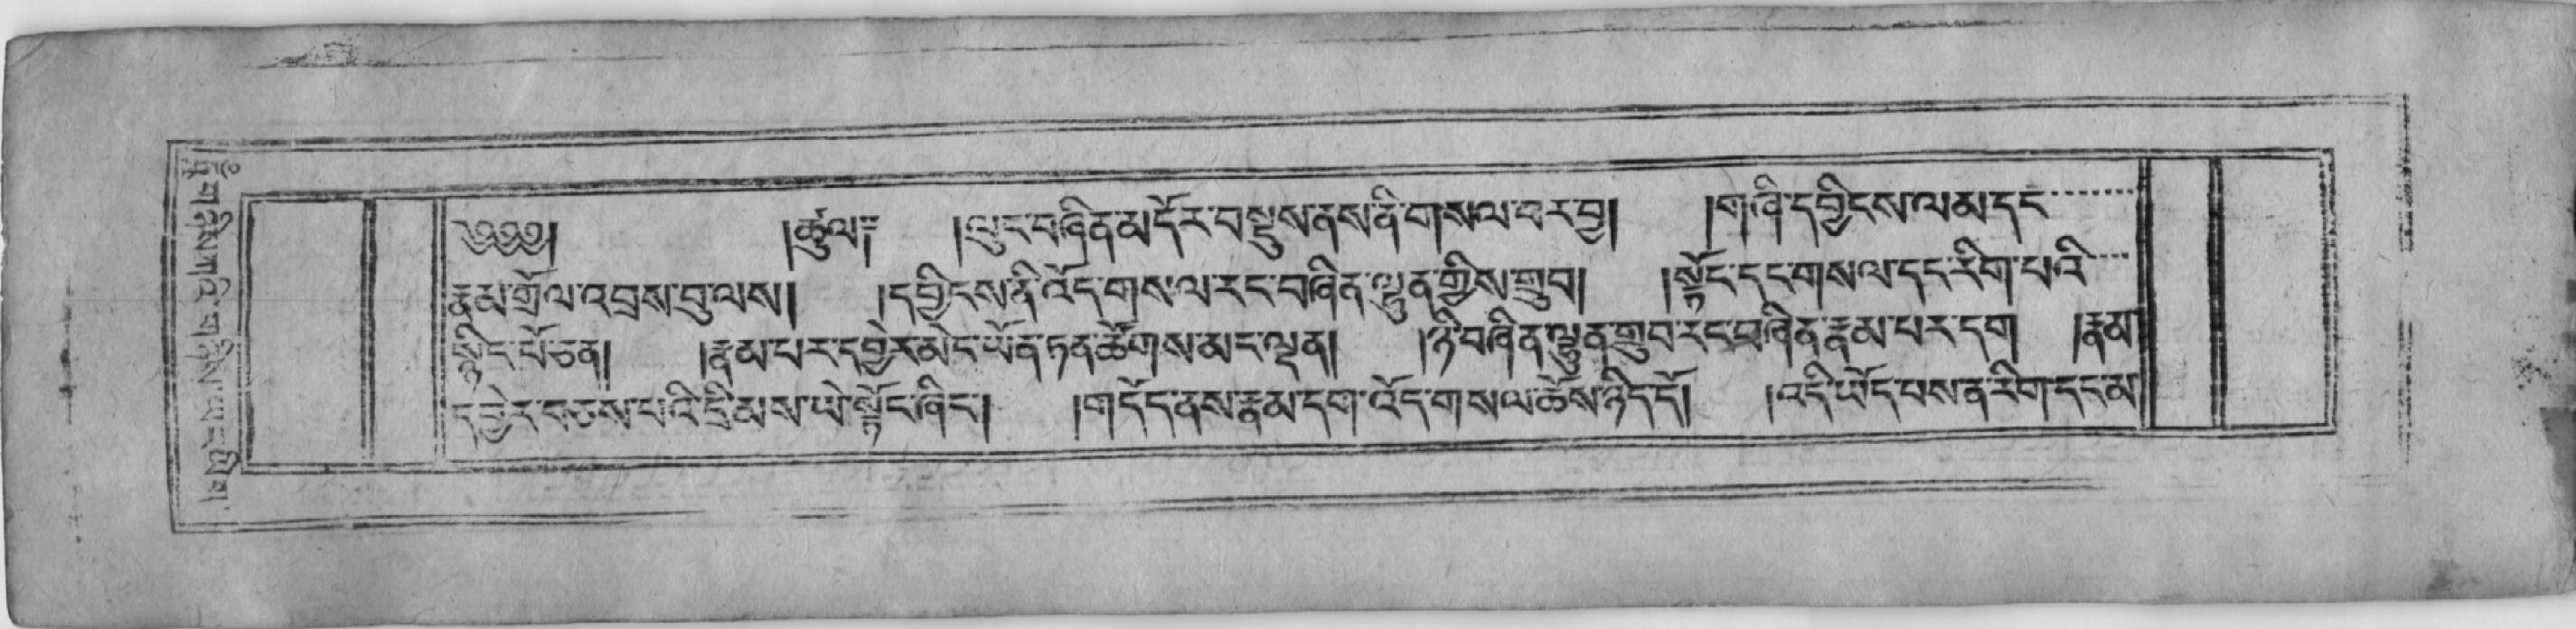 ༄༅༅། །ཚུལ༔ །ལུང་བཞིན་མདོར་བསྡུས་ནས་ནི་གསལ་བར་བྱ། །གཞི་དབྱིངས་ལམ་དང་
རྣམ་གྲོལ་འབྲས་བུ་ལས། །དབྱིངས་ནི་འོད་གསལ་རང་བཞིན་ལྷུན་གྱིས་གྲུབ། །སྟོང་དང་གསལ་དང་རིག་པའི་
སྙིང་པོ་ཅན། །རྣམ་པར་དབྱེར་མེད་ཡོན་ཏན་ཚོགས་མང་ལྡན། །ཉི་བཞིན་ལྷུན་གྲུབ་རང་བཞིན་རྣམ་པར་དག །རྣམ་
དབྱེར་བཅས་པའི་དྲི་མས་ཡེ་སྟོང་ཞིང་། །གདོད་ནས་རྣམ་དག་འོད་གསལ་ཆོས་ཉིད་དོ། །འདི་ཡོད་པས་ན་རིག་དང་མ་